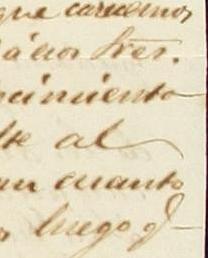 que carecemos
á esos Sres.
cimiento
te al
an cuanto
luego q